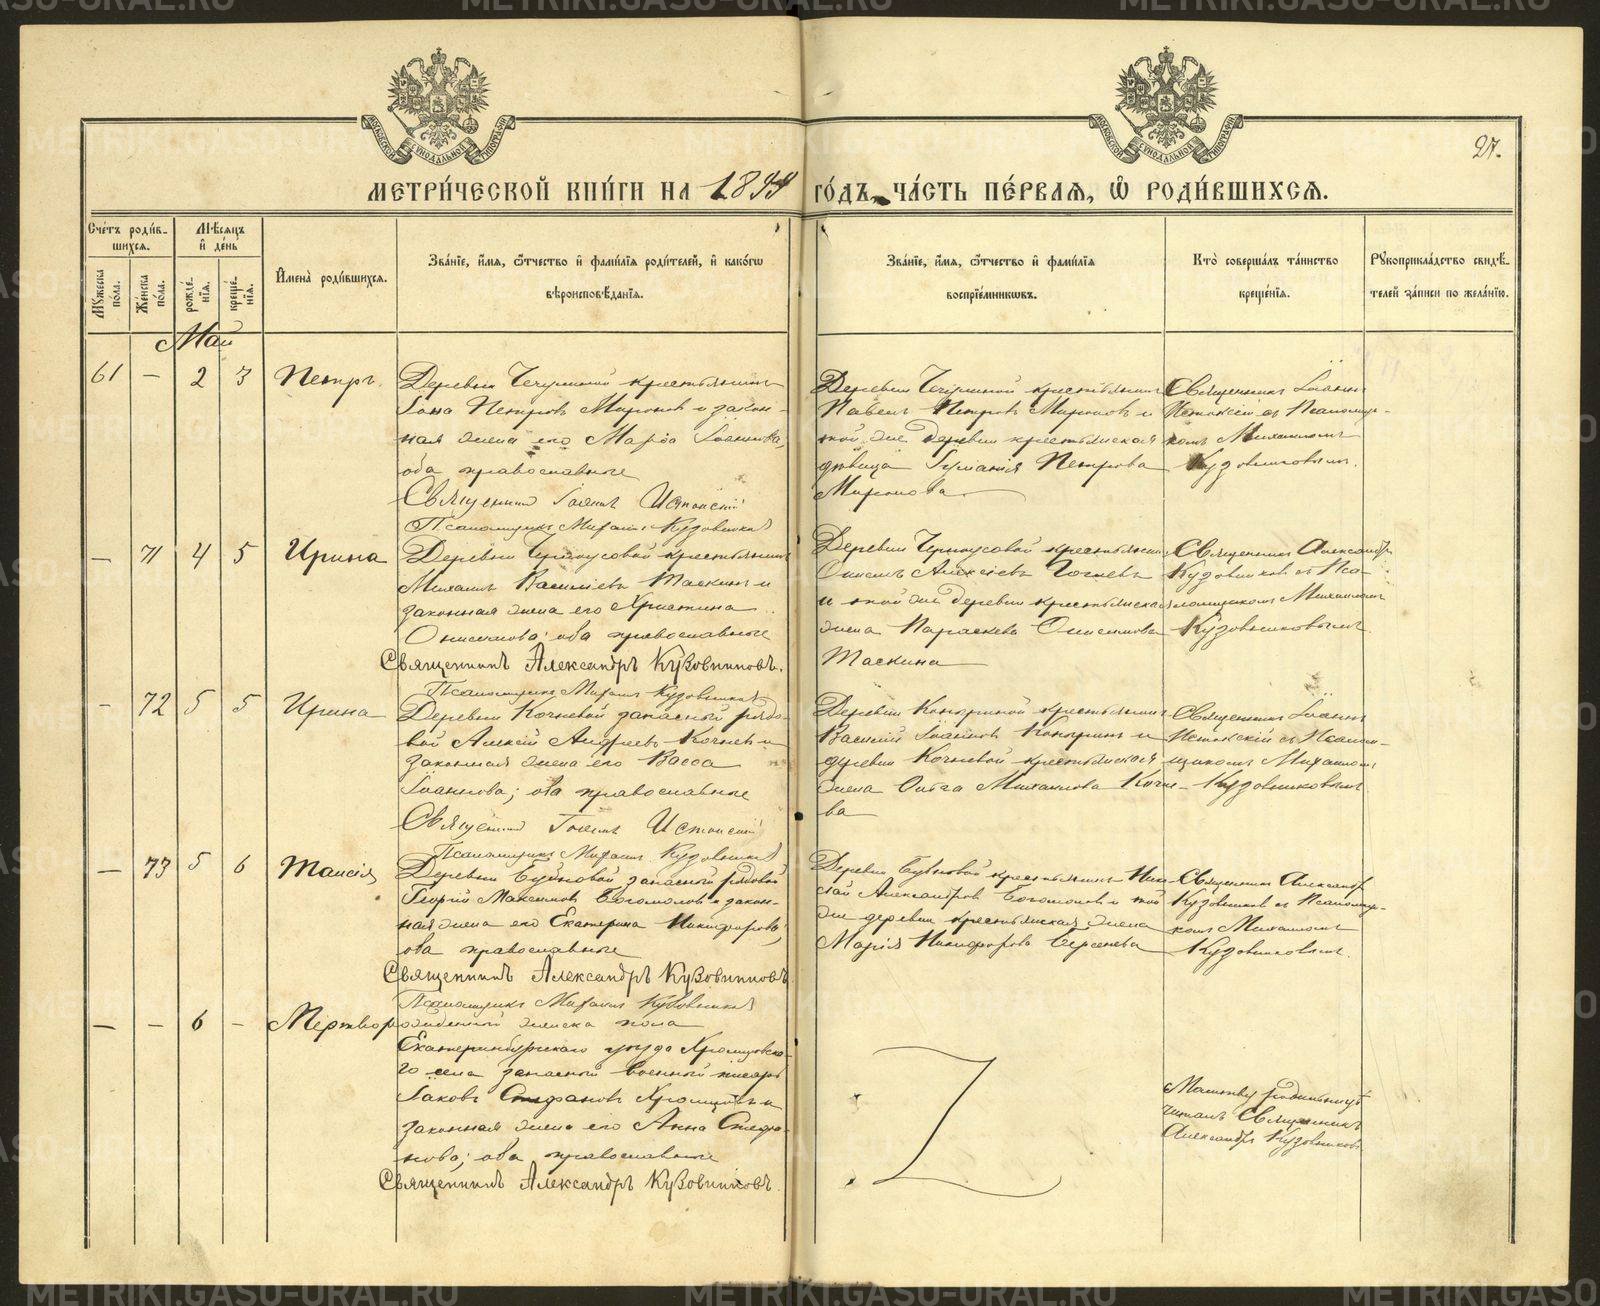 27.
МОСКОВСКОЙ СѴНОДАЛЬНОЙ ТИПОГРАФІИ
МОСКОВСКОЙ СѴНОДАЛЬНОЙ ТИПОГРАФІИ
МЕТРИ́ЧЕСКОЙ КНИ́ГИ НА 1899 ГО́ДЪ, ЧА́СТЬ ПЕ́РВАЯ, Ѡ РОДИ́ВШИХСЯ.
Сче́тъ роди́в-
шихся.
Мѣ́сяцъ
и҆ де́нь
Мꙋ́жеска по́ла.
Же́нска по́ла.
рожде́-
нїя.
креще́-
нїя.
И҆мена̀ роди́вшихся.
Зва́нїе, и҆́мя, ѻ҆́тчество и҆ фами́лїя роди́телей, и҆ како́гѡ
вѣроисповѣ́данїя.
Зва́нїе, и҆́мя, ѻ҆́тчество и҆ фами́лїя
воспрїе́мникѡвъ.
Кто̀ соверша́лъ та́инство
креще́нїя.
Рꙋкоприкла́дство свидѣ́-
телей за́писи по жела́нїю.
Май
61 — 2 3 Петръ.
Деревни крестьянинъ
Іона Петровъ Мироновъ и закон-
ная жена его Марѳа Іоаннова,
оба православные
Священникъ Іоаннъ Истокскій
Псаломщикъ Михаилъ Кузовниковъ
Деревни крестьянинъ
Павелъ Петровъ Мироновъ и
той же деревни крестьянская
дѣвица Іуліанія Петрова
Миронова
Священникъ Іоаннъ
Истокскій съ Псаломщи-
комъ Михаиломъ
Кузовниковымъ.
— 71 4 5 Ирина
Деревни Черноусовой крестьянинъ
Михаилъ Васильевъ Таскинъ и
законная жена его Христина
Онисимова; оба православные
Священникъ Александръ Кузовниковъ.
Псаломщикъ Михаилъ Кузовниковъ
Деревни Черноусовой крестьянинъ
Онисимъ Алексіевъ
и той же деревни крестьянская
жена Параскева Онисимова
Таскина
Священникъ Александръ
Кузовниковъ съ Пса-
ломщикомъ Михаиломъ
Кузовниковымъ
— 72 5 5 Ирина
Деревни Кочневой запасный рядо-
вой Алексій Андреевъ Кочневъ и
законная жена его Васса
Іоаннова; оба православные
Священникъ Іоаннъ Истокскій
Псаломщикъ Михаилъ Кузовниковъ
Деревни крестьянинъ
Василій Іоанновъ и
деревни Кочневой крестьянская
жена Ольга Михаилова Кочне-
ва
Священникъ Іоаннъ
Истокскій съ Псалом-
щикомъ Михаиломъ
Кузовниковымъ
— 73 5 6 Таисія
Деревни Бубновой запасный рядовой
Георгій Максимовъ Богомоловъ и закон-
ная жена его Екатерина Никифорова;
оба православные
Священникъ Александръ Кузовниковъ
Псаломщикъ Михаилъ Кузовниковъ
Деревни Бубновой крестьянинъ Нико-
лай Александровъ Богомоловъ и той
же деревни крестьянская жена
Марія Никифорова Берсенева
Священникъ Александръ
Кузовниковъ съ Псаломщи-
комъ Михаиломъ
Кузовниковымъ.
— — 6 — Мертворожденный женска пола
Екатеринбургскаго уѣзда Хромцовска-
го села запасный военный писарь
Іаковъ Стефановъ Хромцовъ и
законная жена его Анна Стефа-
нова; оба православные
Священникъ Александръ Кузовниковъ.
Молитву родильницѣ
читалъ Священникъ
Александръ Кузовниковъ
METRIKI.GASO-URAL.RU